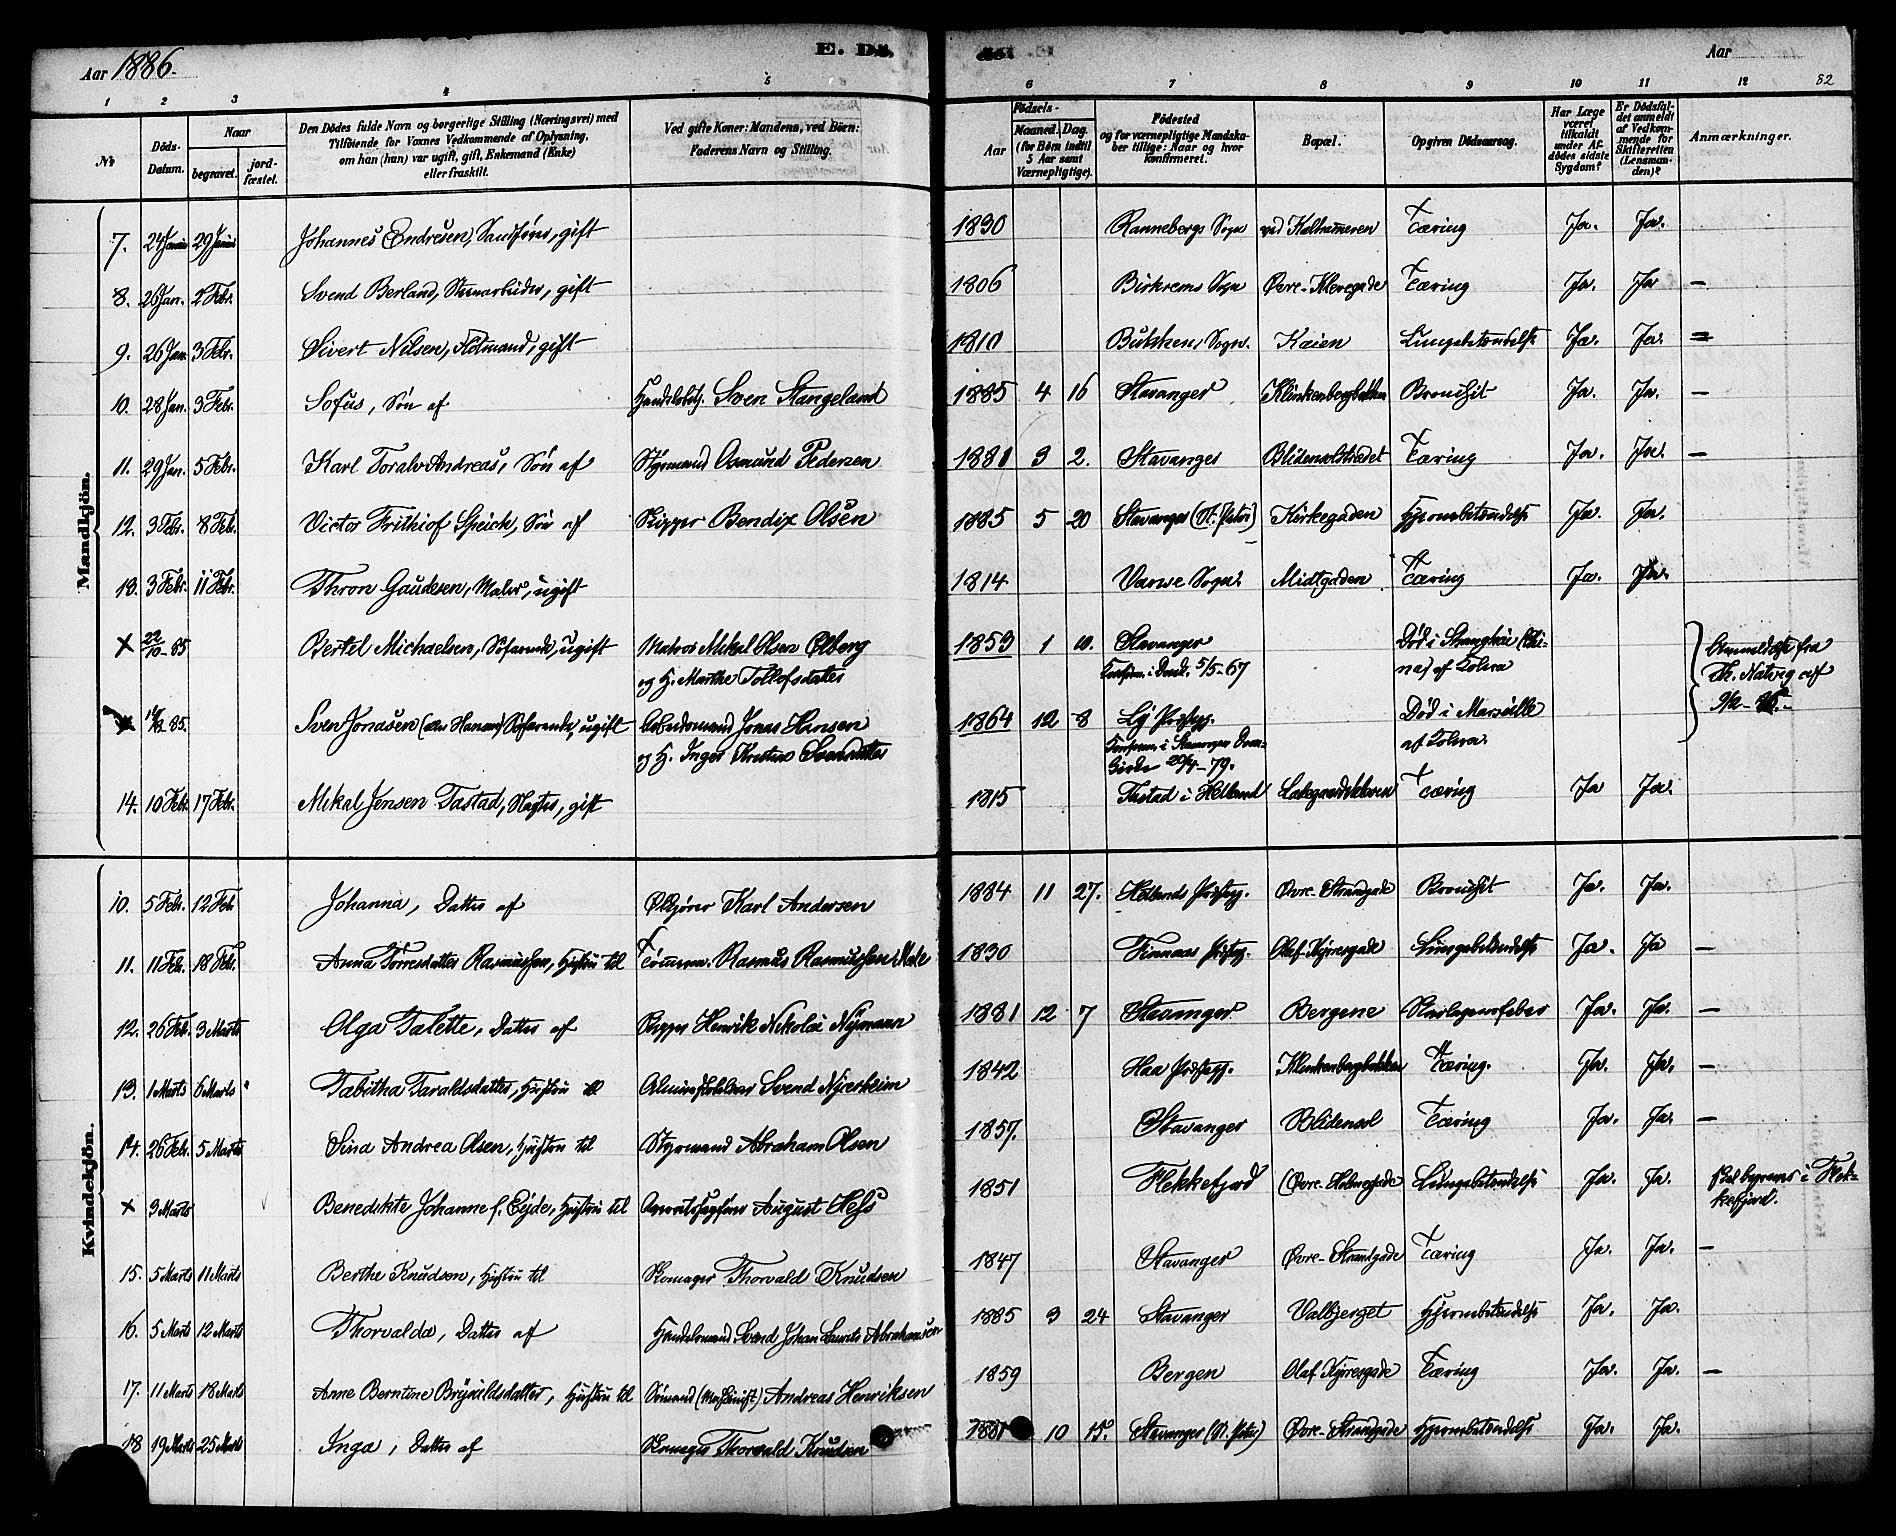 Aar 1886.
E. Dö
de.
Aar
82
1 2 3 4 5 6 7 8 9 10 11 12
No
Döds-Datum.
Naar
begravet.
jord-fæstet.
Den Dödes fulde Navn og borgerlige Stilling (Næringsvei) med
Tilföiende for Voxnes Vedkommende af Oplysning,
om han (hun) var ugift, gift, Enkemand (Enke)
eller fraskilt.
Ved gifte Koner: Mandens, ved Börn:
Faderens Navn og Stilling.
Födsels-
Aar
Maaned. Dag.
(for Börn indtil
5 Aar samt
Værnepligtige).
Födested
og for værnepligtige Mandska-
ber tillige: Naar og hvor
konfirmeret.
Bopæl.
Opgiven Dödsaarsag.
Har Læge
været
tilkaldt
under Af-
dödes sidste
Sygdom?
Er Dödsfal-
det anmeldt
af Vedkom-
mende for
Skifteretten
(Lensman-
den)?
Anmærkninger.
Mandkjön.
7. 24 Januar 29 Januar Johannes Endresen, gift 1830 Rannebergs Sogn Tæring Ja. Ja.
8. 26 Jan. 2 Febr. Svend Berland, Stenarbeider, gift 1806 Birkrems Sogn Øvre-Klevegade Tæring Ja. Ja —
9. 26 Jan. 3 Febr. Sivert Nilsen, gift 1810 Bukken Sogn. Kaien Lungebetændelse Ja. Ja. =
10. 28 Jan. 3 Febr. Sofus, Søn af Handelsbetj. Sven Stangeland 1885 4 16 Stavanger Klinkenbergbakken Bronchit Ja. Ja. —
11. 29 Jan. 5 Febr. Karl Toralv Andreas, Søn af Styrmand Osmund Pedersen 1881 3 2. Stavanger Blidensolstrædet Tæring Ja. Ja. —
12. 3 Febr. 8 Feb. Victor Frithiof Speich, Søn af Skipper Bendix Olsen 1885 5 20 Stavanger (St. Petri) Kirkegaden Hjernebetændelse Ja. Ja.
13. 3 Febr. 11 Febr. Thron Gaudesen, Maler, ugift 1814 Sogn. Midtgaden Tæring Ja. Ja.
× 22/10-85 Bertel Michaelsen, Søfarende, ugift Matros Mikal Olsen Ølberg 1853 1 10. Stavanger Død i Shanghai (Chi-
og H. Marthe Tollefsdatter Konfirm. i Domk. 5/5-67 na) af Kolera
85. Sven Jonasen (Hansen) Søfarende, ugift Arbeidsmand Jonas Hansen 1864 12 8 Død i Marseille
og H. Inger Kristine Svendsdatter Konfirm. i Stavanger Dom- af Kolera.
kirke 20/4-79.
Anmeldelse fra
Th. Natvig af
14. 10 Febr. 17 Febr. Mikal Jensen Tastad, gift 1815 Tastad i Hetland Tæring Ja Ja.
Kvindekjön.
10. 5 Febr. 12 Feb Johanna, Datter af Ølkjører Karl Andersen 1884 11 27. Hetlands Præstegj. Øvre-Strandgade Bronchit Ja. Ja.
11. 11 Febr. 18 Febr. Anna Torresdatter Rasmussen, Hustru til Tømmerm. Rasmus Rasmussen 1830 Finnaas Præstegj. Olaf-Kyrresgade Lungebetændelse Ja. Ja —
12. 26 Feb. 3 Marts Olga Talette, Datter af Skipper Henrik Nikolai Nymann 1881 12 7 Stavanger Bergene Skarlagensfeber Ja. Ja. —
13. 1 Marts 6 Marts Tabitha Taraldsdatter, Hustru til Svend Njærheim 1842 Haa Præstegj. Klinkenbergbakken Tæring. Ja. Ja. —
14. 26 Febr. 5 Marts Sina Andrea Olsen, Hustru til Styrmand Abraham Olsen 1857. Stavanger Blidensol Tæring Ja. Ja. —
× 3 Marts Benedikte Johanne f. Eyde, Hustru til Overretssagfører August Hess 1851 Flekkefjord Øvre-Holmegade Lungebetændelse Ja. Ja. Skal begraves i Flek-
kefjord.
15. 5 Marts 11 Marts Berthe Knudsen, Hustru til Skomager Thorvald Knudsen 1847 Stavanger Øvre-Strandgade Tæring Ja. Ja. —
16. 5 Marts 12 Marts Thorvalda, Datter af Handelsmand Svend Johan Laurits Abrahamsen 1885 3 24 Stavanger Valbjerget Hjernebetændelse Ja. Ja.
17. 11 Marts 18 Marts Anne Berntine Brynildsdatter, Hustru til Sømand (Maskinist) Andreas Henriksen 1859 Bergen Olaf Kyrresgade Tæring Ja. Ja. —
18 19 Marts 25 Marts Inga, Datter af Skomager Thorvald Knudsen 1881 10 15. Stavanger (St. Petri) Øvre-Strandgade Hjernebetændelse Ja. Ja.